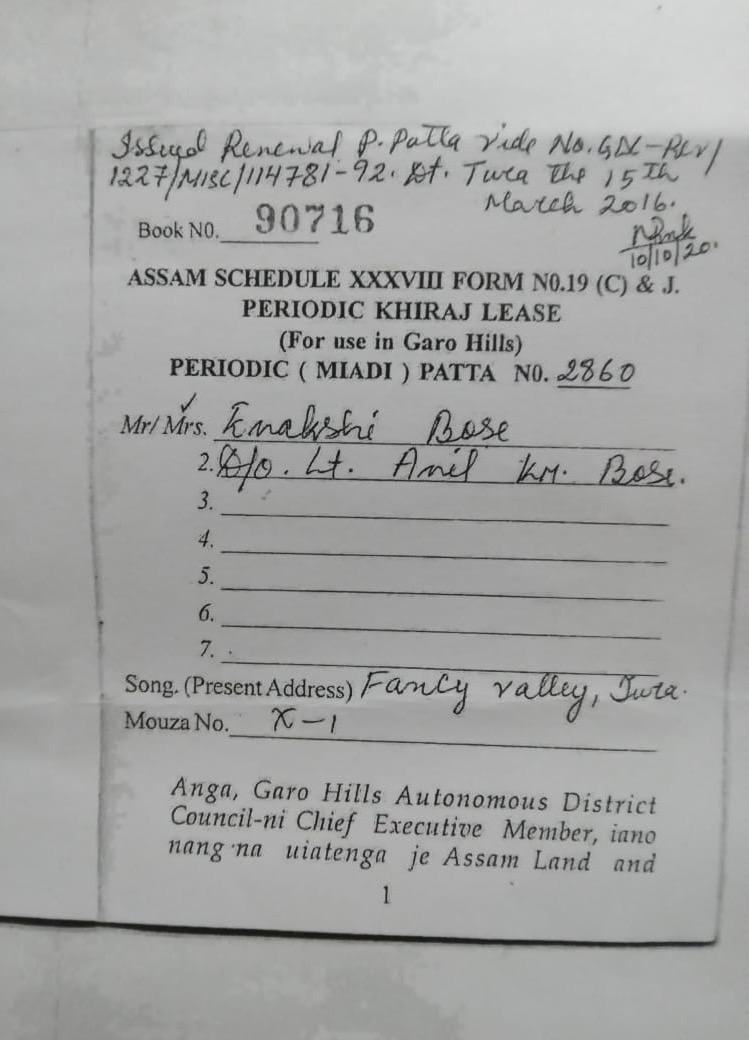 Issued Renewal P. Patta vide No. GDC-Rev/
1227/MISC/114781-92. Dt. Tura the 15th
March 2016.
Book N0. 90716
10/10/20.
ASSAM SCHEDULE XXXVIII FORM N0.19 (C) & J.
PERIODIC KHIRAJ LEASE
(For use in Garo Hills)
PERIODIC ( MIADI ) PATTA N0. 2860
Mr/ Mrs. Enakshi Bose
2. D/o. Lt. Anil Kr. Bose.
3.
4.
5.
6.
7.
Song. (Present Address) Fancy valley, Tura.
Mouza No. X-1
Anga, Garo Hills Autonomous District
Council-ni Chief Executive Member, iano
nang·na uiatenga je Assam Land and
1